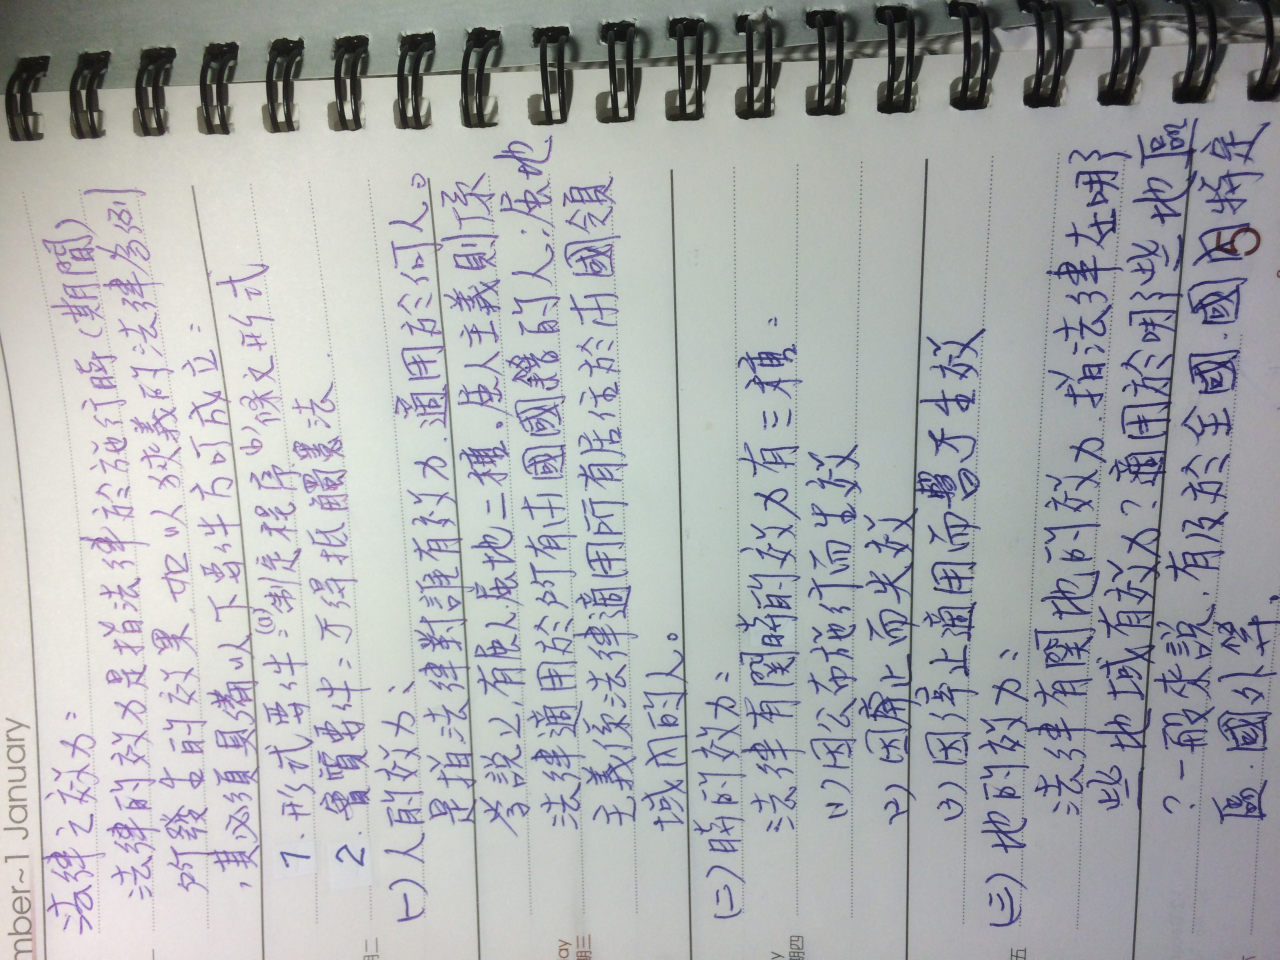 mber~1 January
法律之效力：
法律的效力是指法律於施行時(期間)
所發生的效果，如以狹義的法律為例
，其必須具備以下要件方可成立：
1. 形式要件：(a)制定程序 (b)條文形式
2. 實質要件：不得抵觸憲法.
(一)人的效力：
是指法律對誰有效力，適用於何人。
學說上，有屬人屬地二種。屬人主義則係
法律適用於所有本國國籍的人；屬地
主義係法律適用所有居住於本國領
域內的人。
(二)時的效力：
法律有關時的效力有三種。
(1)因公布施行而生效
(2)因廢止而失效
(3)因停止適用而暫不生效
(三)地的效力：
法律有關地的效力，指法律在哪
些地域有效力？適用於哪些地區
？一般來說，有及於全國、國內特定
區、國外等。
5
期二
期三
期四
五